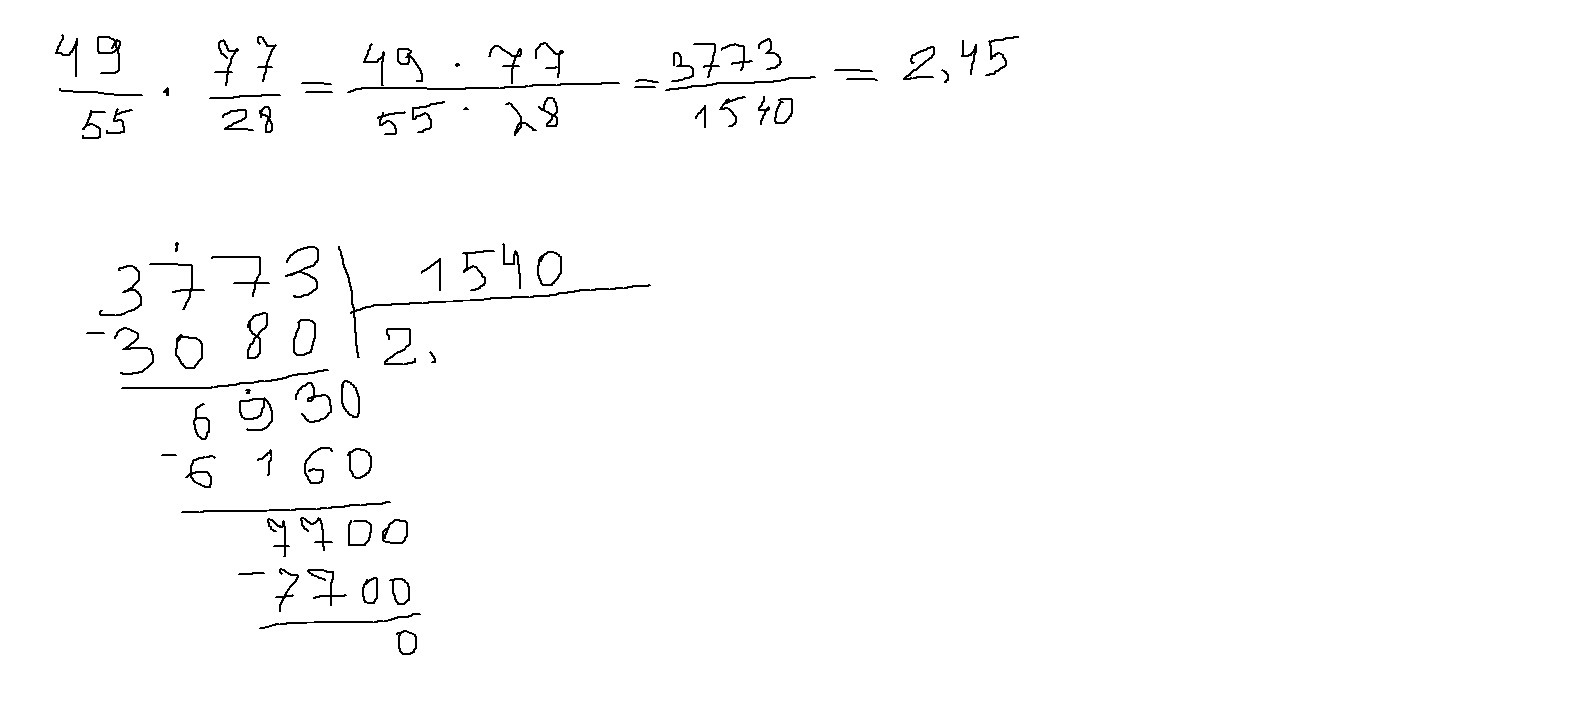 49/55 · 77/28 = 49 · 77/55 · 28 = 3773/1540 = 2,45
3773 | 1540
-3080 | 2,
6930
-6160
7700
-7700
0